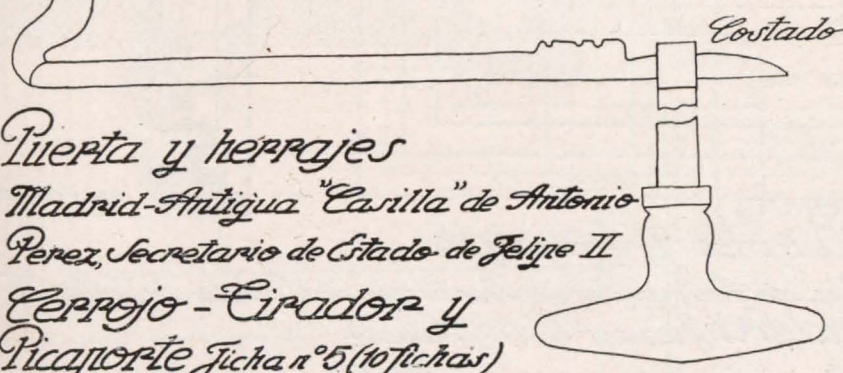 Costado
Puerta y herrajes
Madrid-Antigua "Casilla" de Antonio
Perez, Secretario de Estado de Felipe II
Cerrojo-Tirador y
Picaporte Ficha nº5 (10 fichas)